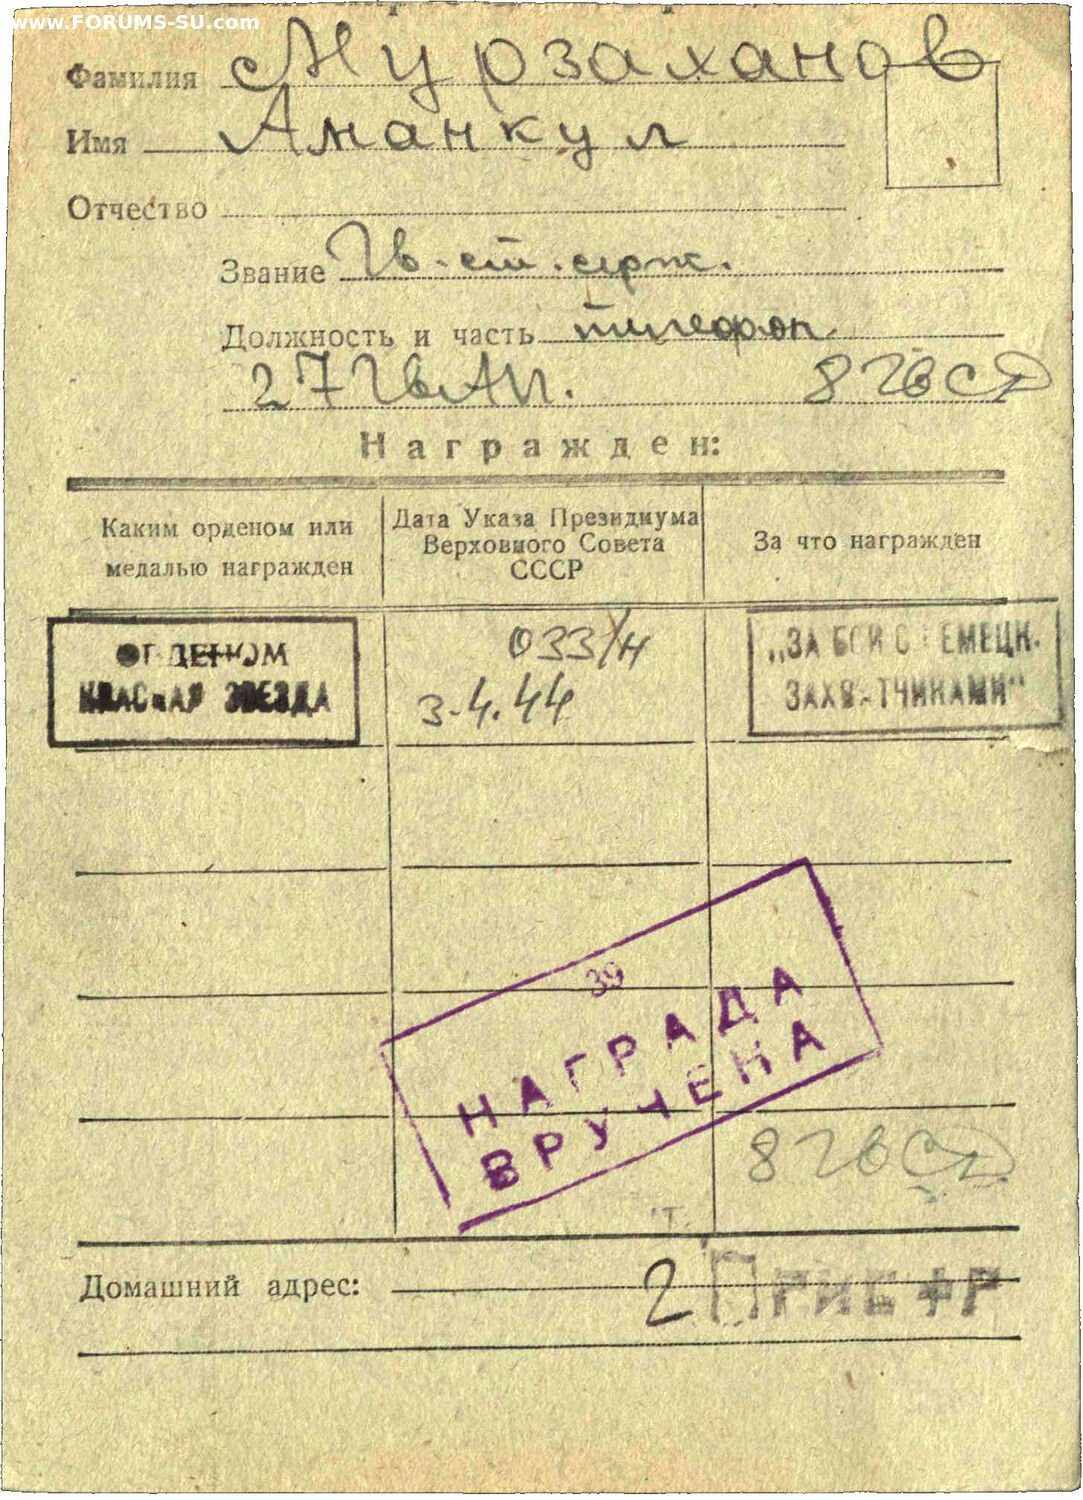 www.FORUMS-SU.com
Фамилия Мурзаханов
Имя Аманкул
Отчество
Звание Гв. ст. серж.
Должность и часть телефон.
27 Гв АП. 8 Гв СД
Награжден:
Каким орденом или медалью награжден
Дата Указа Президиума Верховного Совета СССР
За что награжден
ОРДЕНОМ
КРАСНАЯ ЗВЕЗДА
033/н
3.4.44
„ЗА БОИ С НЕМЕЦК.
ЗАХВАТЧИКАМИ"
39
НАГРАДА
ВРУЧЕНА
8 Гв СД
Домашний адрес: 2